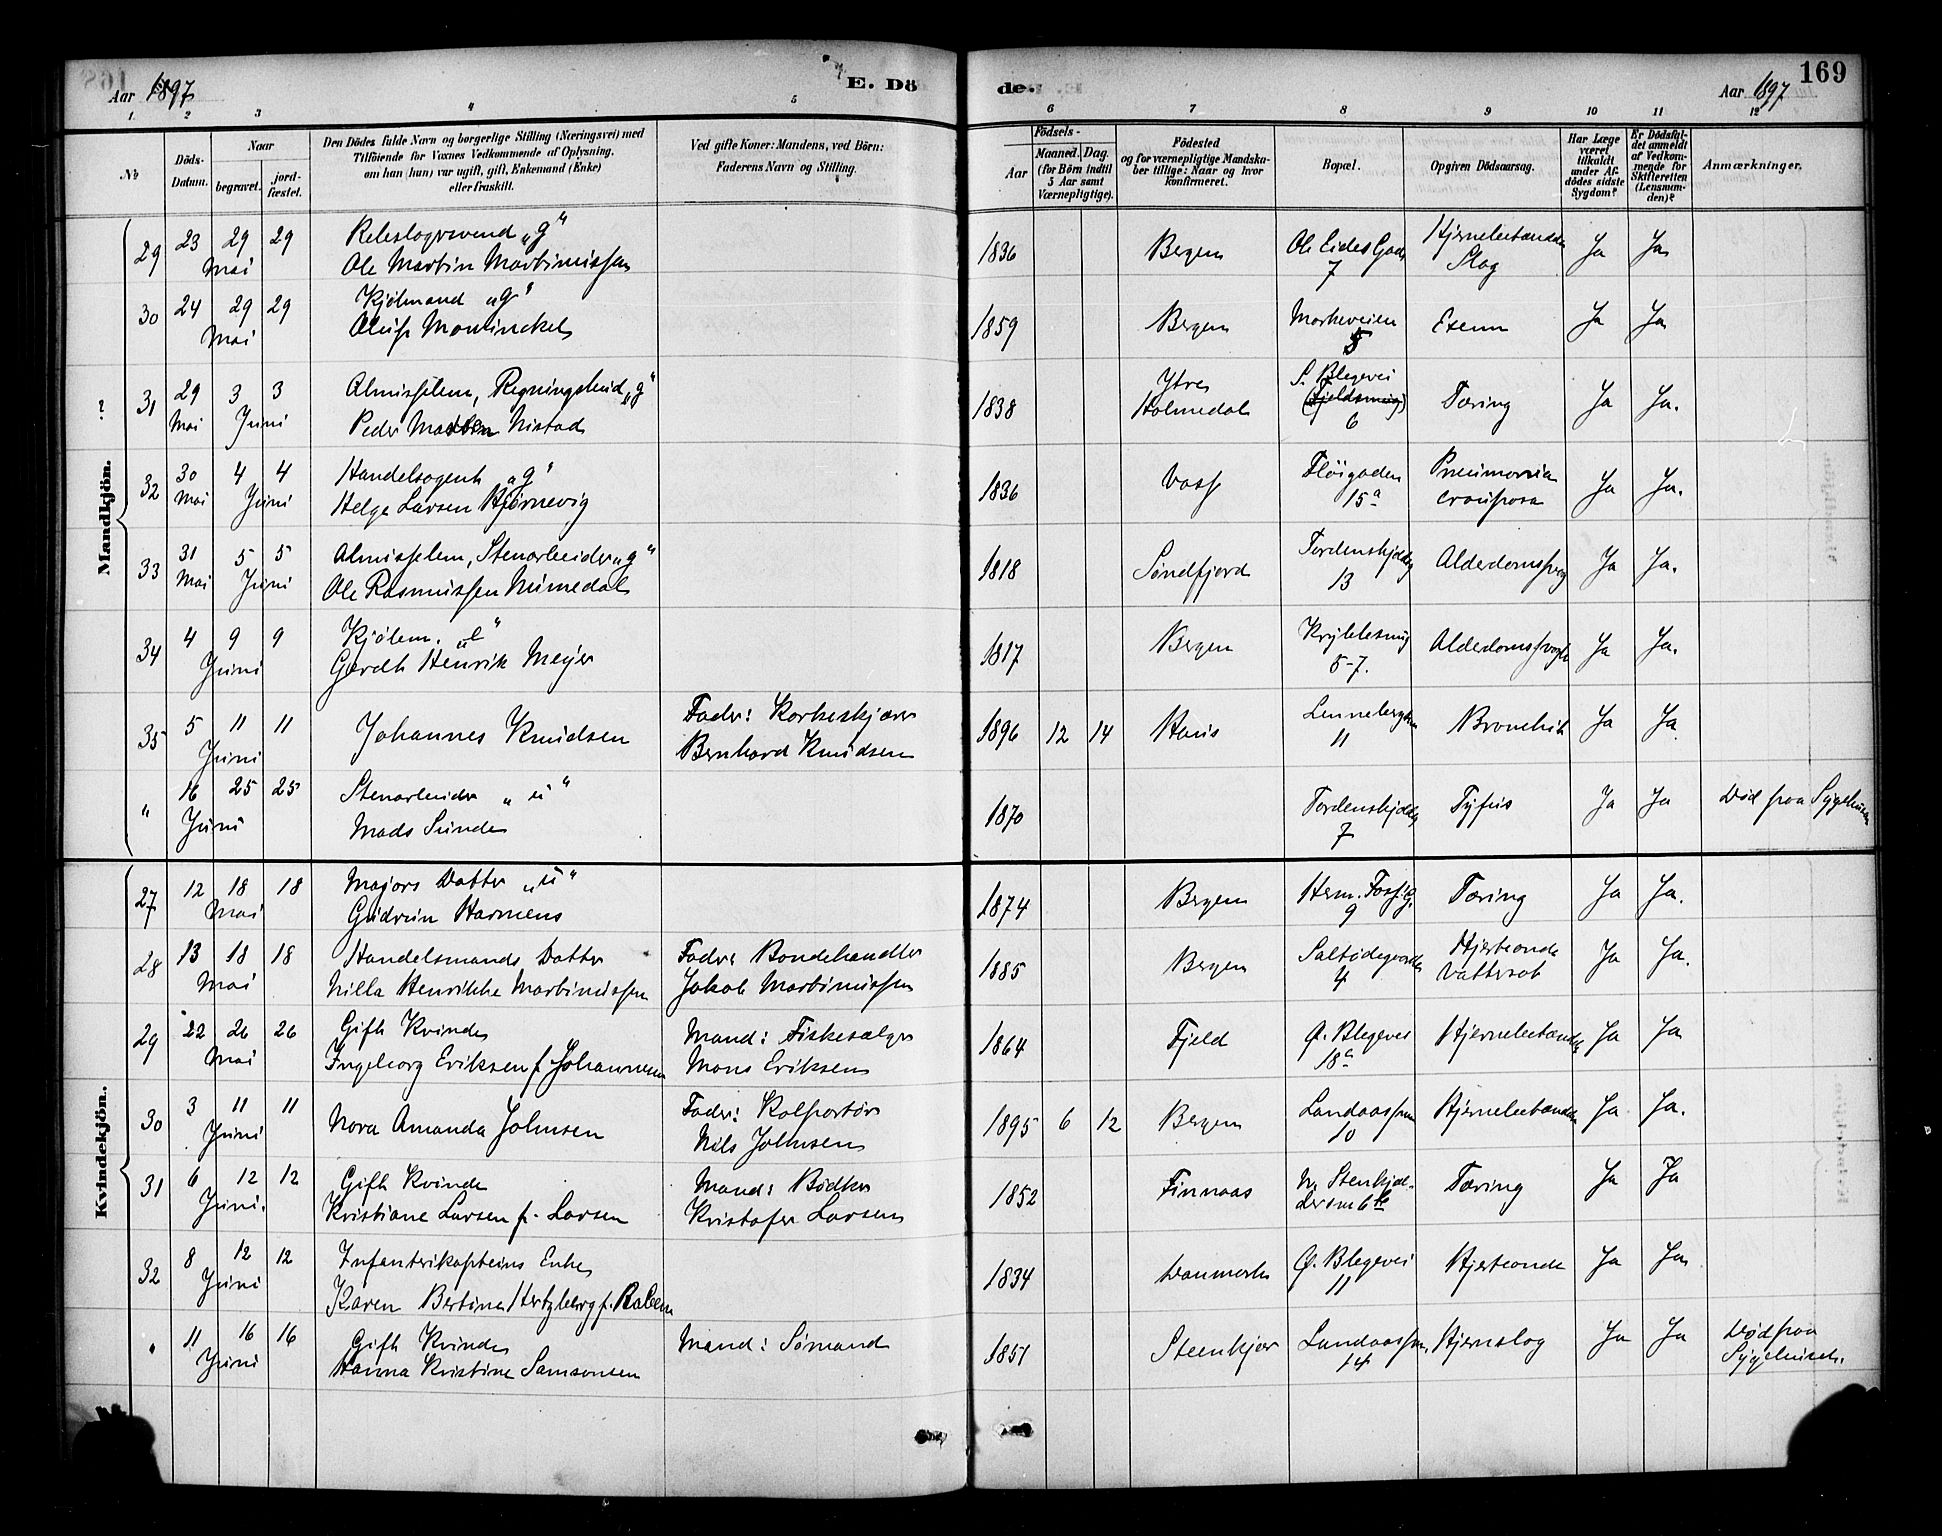 Aar 1897
E. Dö
de.
Aar 1897
169
1. 2 3 4 5 6 7 8 9 10 11 12
No
Döds-Datum.
Naar
begravet.
jord-fæstet.
Den Dödes fulde Navn og borgerlige Stilling (Næringsvei) med
Tilföiende for Voxnes Vedkommende af Oplysning.
om han (hun) var ugift, gift, Enkemand (Enke)
eller fraskilt.
Ved gifte Koner: Mandens, ved Börn:
Faderens Navn og Stilling.
Födsels-
Aar
Maaned. Dag.
(for Börn indtil
5 Aar samt
Værnepligtige).
Födested
og for værnepligtige Mandska-
ber tillige: Naar og hvor
konfirmeret.
Bopæl.
Opgiven Dödsaarsag.
Har Læge
været
tilkaldt
under Af-
dödes sidste
Sygdom?
Er Dödsfal-
det anmeldt
af Vedkom-
mende for
Skifteretten
(Lensman-
den)?
Anmærkninger.
Mandkjön.
29 23 29 29 Mai "g"
Ole Martin Martinussen
1836 Bergen Ole Eides Gade 7 Hjernebetændelse Slag Ja Ja
30 24 29 29 Mai Kjølmand "g"
Oluf Moninckel
1859 Bergen Markeveien 5 Exem Ja Ja
?
31 29 Mai 3 3 Juni Almisselem, "g"
Peder Madsen Nistad
1838 Ytre Holmedal S. Blegevei 6 Tæring Ja Ja.
32 30 Mai 4 4 Juni Handelsagent "g"
Helge Larsen Hjørnevig
1836 Voss Fløigaden 15a Pneumonia crouposa Ja Ja.
33 31 Mai 5 5 Juni Almisselem, Stenarbeider "g"
Ole Rasmussen Nümedal
1818 Søndfjord Tordenskjoldsg 13 Alderdomssvag Ja Ja.
34 4 9 9 Juni Kjølem. "e"
Gerdt Henrik Meyer
1817 Bergen 5-7. Alderdomssvagh Ja Ja.
35 5 11 11 Juni Johannes Knudsen Fader: Korkeskjærer
Bernhard Knudsen
1896 12 14 Haus Lennebergsm 11 Bronchit Ja Ja
" 16 25 25 Juni Stenarbeider "u"
Mads Sunde
1870 Tordenskjoldsg 7 Tyfus Ja Ja Død paa Sygehuset
Kvindekjön.
27 12 18 18 Mai Majors Datter "u"
Gudrun Harmens
1874 Bergen Herm. Fossg. 9 Tæring Ja Ja.
28 13 18 18 Mai Handelsmands Datter Fader: Bondehandler
Nilla Henrikke Martinussen Jakob Martinussen
1885 Bergen Saltødegaarden 4 Hjerteonde Vattersot Ja Ja.
29 22 26 26 Mai Gift Kvinde Mand: Fiskesælger
Ingeborg Eriksen f. Johannesen Mons Eriksen
1864 Fjeld Ø. Blegevei 18a Hjernebetændelse Ja Ja
30 3 11 11 Juni Nora Amanda Johnsen Fader: Kolportør
Nils Johnsen
1895 6 12 Bergen Landaassm 10 Hjernebetændelse Ja Ja.
31 6 12 12 Juni. Gift Kvinde Mand: Bødker
Kristiane Larsen f. Larsen Kristofer Larsen
1852 Finnaas N. Stenkjel-
lersm 6 Tæring Ja Ja
32 8 12 12 Juni Infanterikapteins Enke
Karen Bertine Hertzberg f.
1834 Danmark Ø. Blegevei 11 Hjerteonde Ja Ja
" 11 16 16 Juni Gift Kvinde Mand: Sømand
Hanna Kristine Samsonsen
1851 Steenkjær Landaassm. 14 Hjerneslag Ja Ja Død paa
Sygehuset.